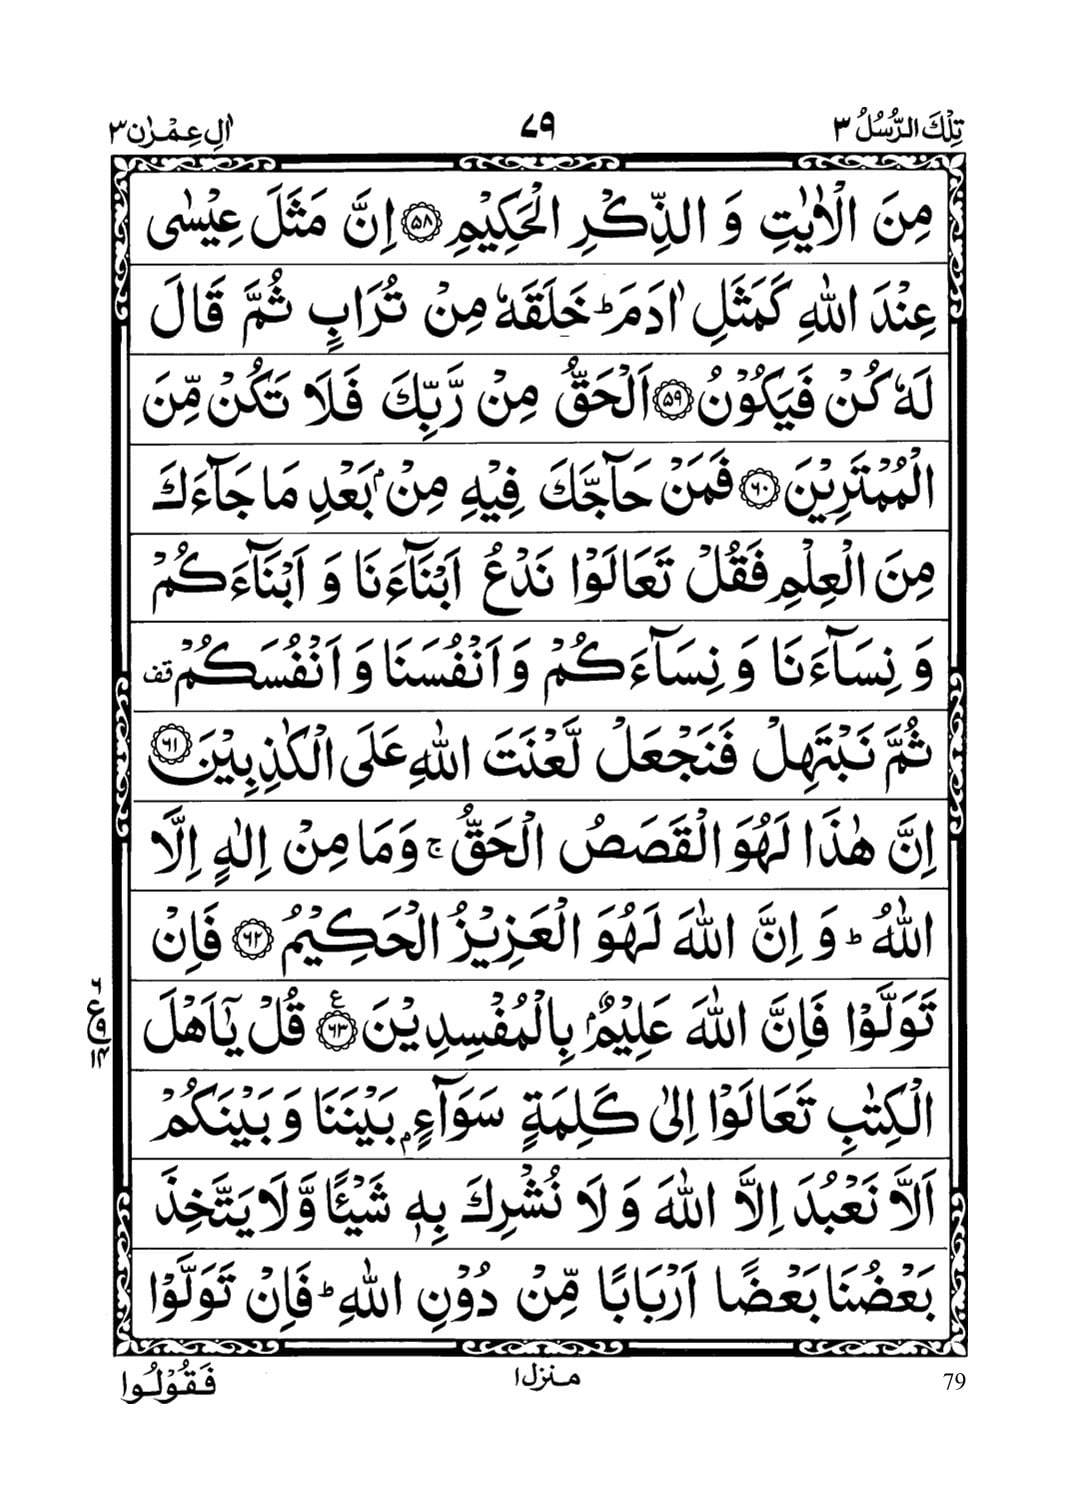 تِلْكَ الرُّسُلُ ٣
٧٩
اٰلِ عِمْرٰن ٣
مِنَ الْاٰيٰتِ وَ الذِّكْرِ الْحَكِيْمِ ﴿۵۸﴾ اِنَّ مَثَلَ عِيْسٰى
عِنْدَ اللّٰهِ كَمَثَلِ اٰدَمَ ؕ خَلَقَهٗ مِنْ تُرَابٍ ثُمَّ قَالَ
لَهٗ كُنْ فَيَكُوْنُ ﴿۵۹﴾ اَلْحَقُّ مِنْ رَّبِّكَ فَلَا تَكُنْ مِّنَ
الْمُمْتَرِيْنَ ﴿۶۰﴾ فَمَنْ حَآجَّكَ فِيْهِ مِنْۢ بَعْدِ مَا جَآءَكَ
مِنَ الْعِلْمِ فَقُلْ تَعَالَوْا نَدْعُ اَبْنَآءَنَا وَ اَبْنَآءَكُمْ
وَ نِسَآءَنَا وَ نِسَآءَكُمْ وَ اَنْفُسَنَا وَ اَنْفُسَكُمْ قف
ثُمَّ نَبْتَهِلْ فَنَجْعَلْ لَّعْنَتَ اللّٰهِ عَلَى الْكٰذِبِيْنَ ﴿۶۱﴾
اِنَّ هٰذَا لَهُوَ الْقَصَصُ الْحَقُّ ۚ وَمَا مِنْ اِلٰهٍ اِلَّا
اللّٰهُ ؕ وَ اِنَّ اللّٰهَ لَهُوَ الْعَزِيْزُ الْحَكِيْمُ ﴿۶۲﴾ فَاِنْ
تَوَلَّوْا فَاِنَّ اللّٰهَ عَلِيْمٌۢ بِالْمُفْسِدِيْنَ ﴿۶۳﴾ ع قُلْ يٰۤاَهْلَ
الْكِتٰبِ تَعَالَوْا اِلٰى كَلِمَةٍ سَوَآءٍۭ بَيْنَنَا وَ بَيْنَكُمْ
اَلَّا نَعْبُدَ اِلَّا اللّٰهَ وَ لَا نُشْرِكَ بِهٖ شَيْـًٔا وَّ لَا يَتَّخِذَ
بَعْضُنَا بَعْضًا اَرْبَابًا مِّنْ دُوْنِ اللّٰهِ ؕ فَاِنْ تَوَلَّوْا
فَقُوْلُوا
منزل ١
79